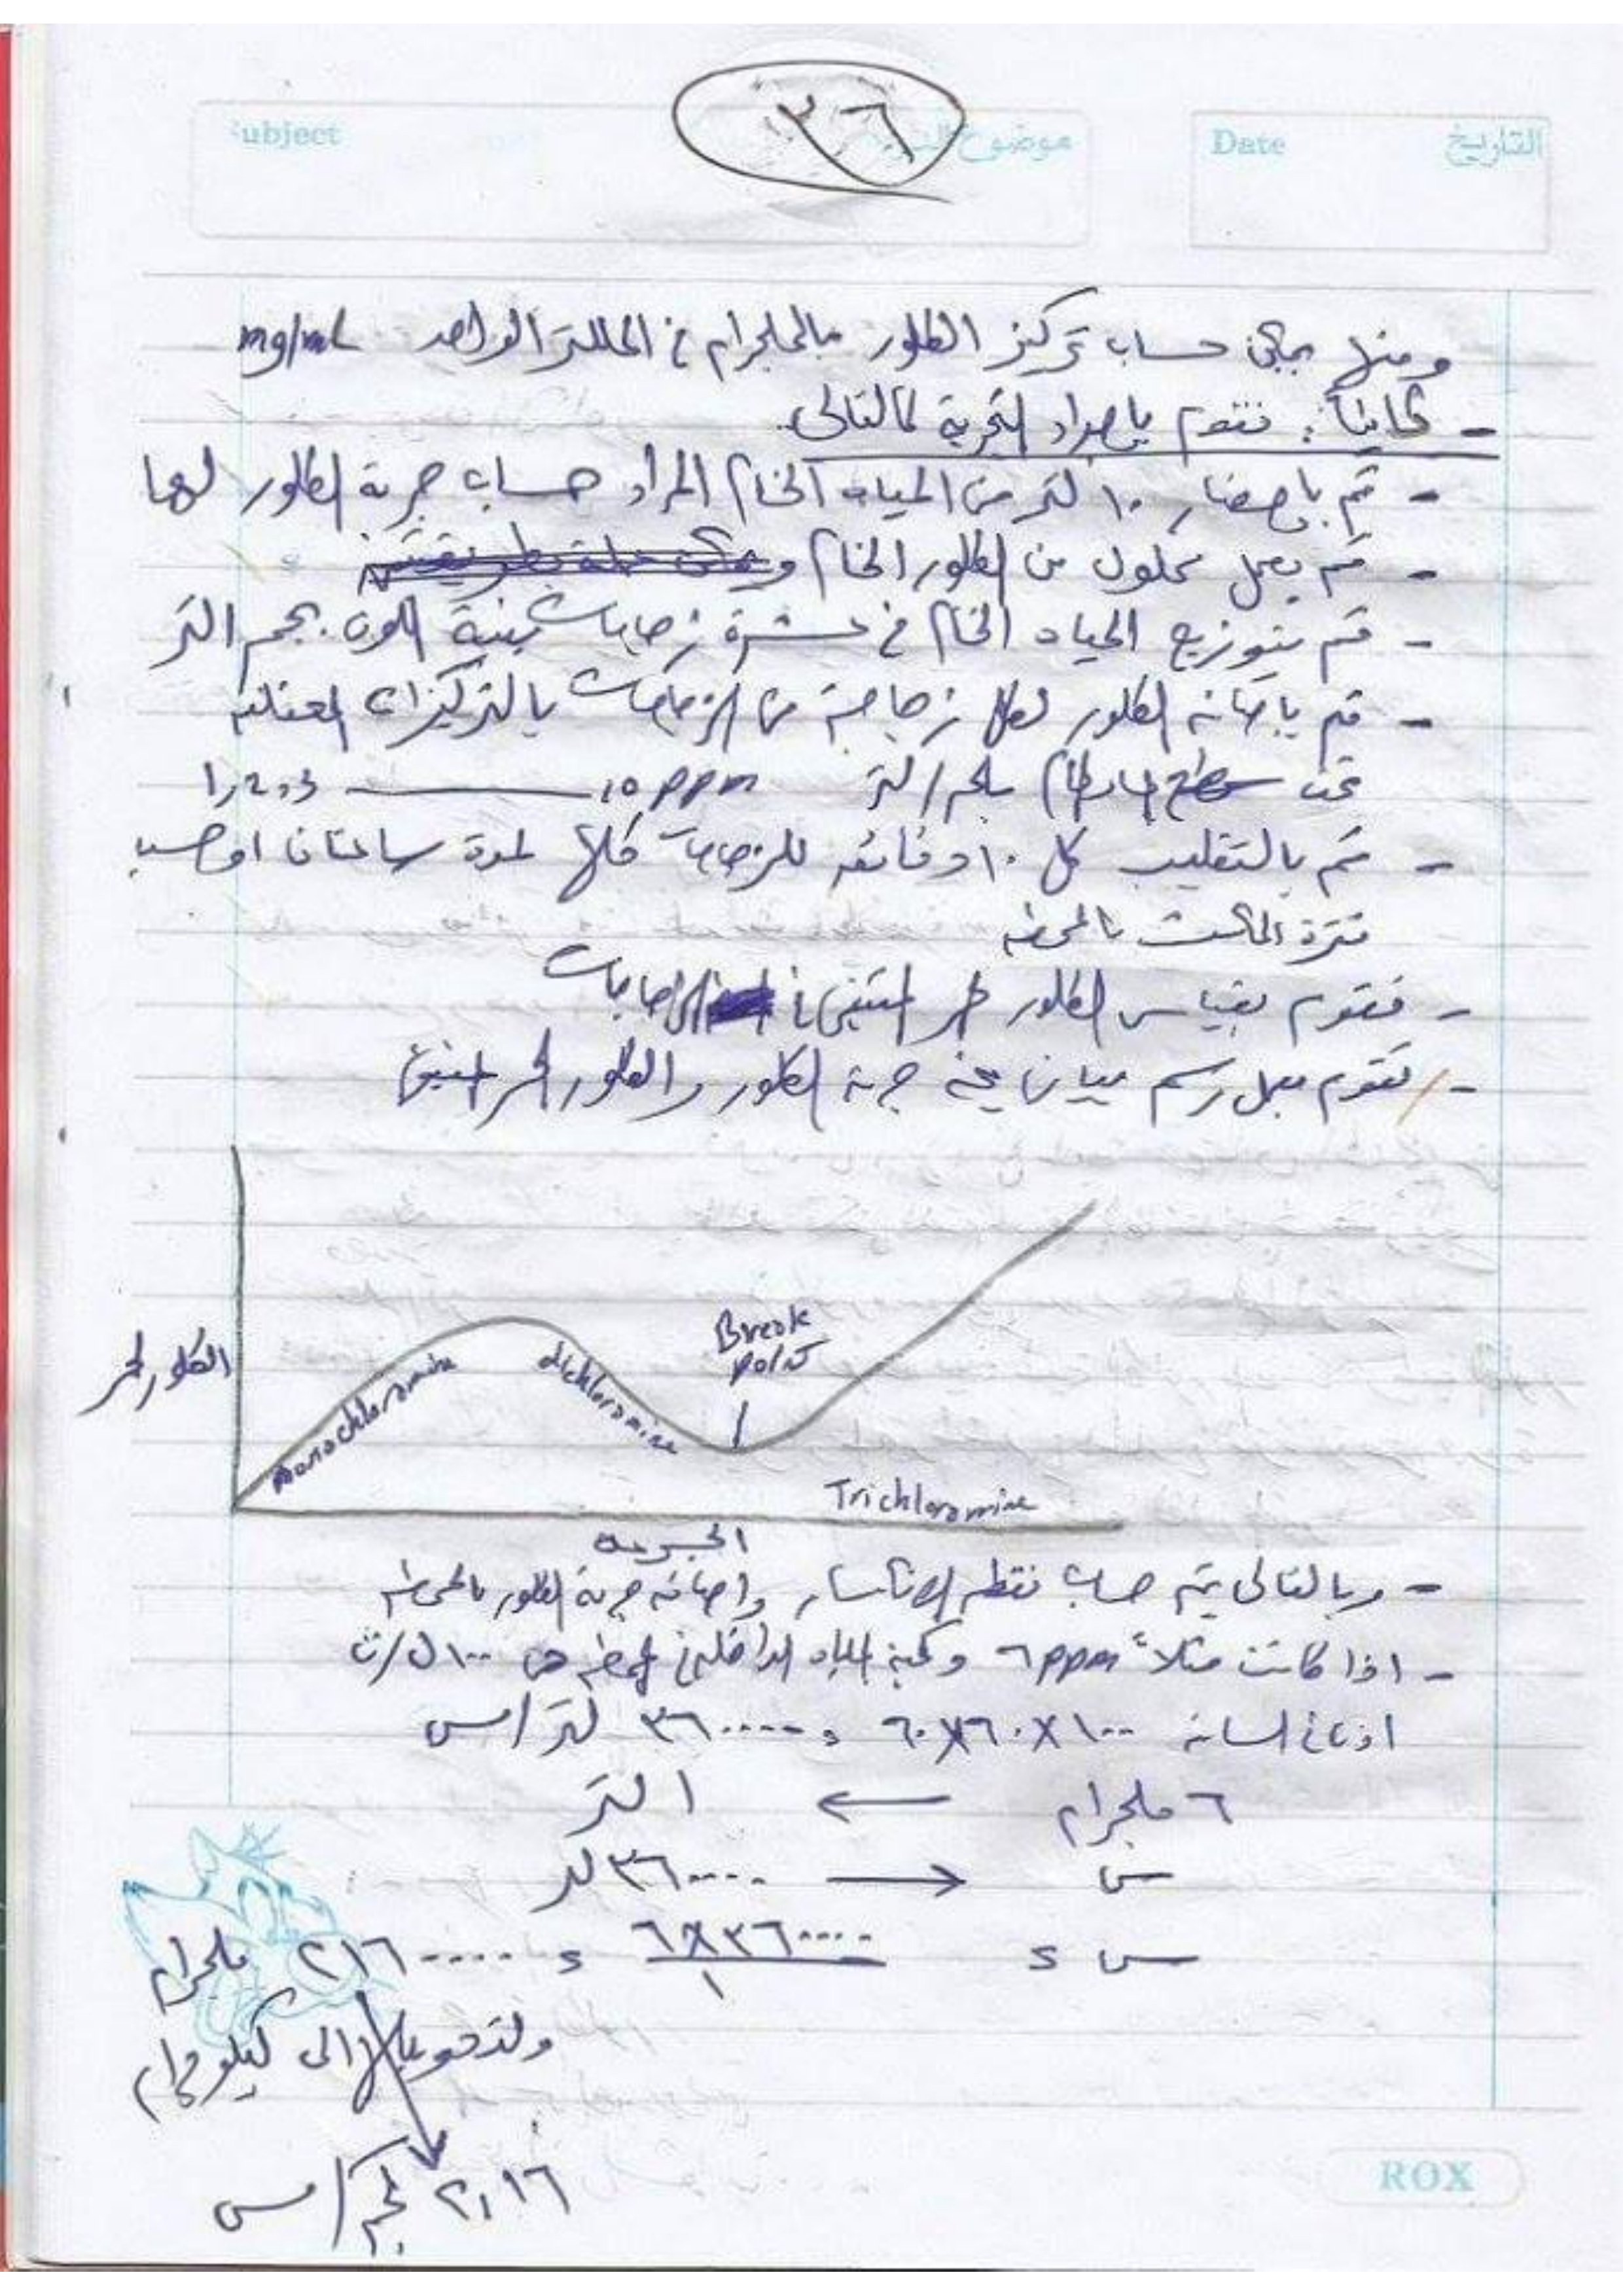 ٣٦
Subject
موضوع الدرس
Date
التاريخ
ومنها يمكن حساب تركيز الكلور بالملجرام في المللتر الواحد mg/mL
- ثانياً: نقوم بإعداد التجربة كالتالى
- قم بإحضار ١٠ لتر من المياه الخام المراد حساب جرعة الكلور لها
- قم بعمل محلول من الكلور الخام
- قم بتوزيع المياه الخام في عشرة زجاجات بنية اللون بحجم التر
- قم بإضافة الكلور لكل زجاجة من الزجاجات بالتركيزات المختلفة
تحت سطح ملجم/لتر 10 ppm ـــــ 1,2,3
- قم بالتقليب كل ١٠ دقائق للزجاجات كلها لمدة ساعتان او حسب
فترة المكث بالمحطه
- فنقوم بقياس الكلور الحر المتبقى في الزجاجات
- نقوم بعمل رسم بيانى جرعة الكلور والكلور الحر المتبقى
الكلور الحر
Monochloramine
dichloramine
Break
point
Trichloramine
الجرعه
- وبالتالى يتم حساب نقطه الانكسار وإضافه جرعة الكلور بالمحطه
- اذا كانت مثلاً ٦ ppm وكمية المياه الداخله المحطه هى ١٠٠ ل/ث
اذن في الساعه ١٠٠×٦٠×٦٠ = ٣٦٠٠٠٠ لتر/س
٦ ملجرام ← ١ لتر
س → ٣٦٠٠٠٠ لتر
س = ٣٦٠٠٠٠×٦ / ١ = ٢١٦٠٠٠٠ ملجرام
ولتحويلها الى كيلو جرام
٢,١٦ كجم/س
ROX